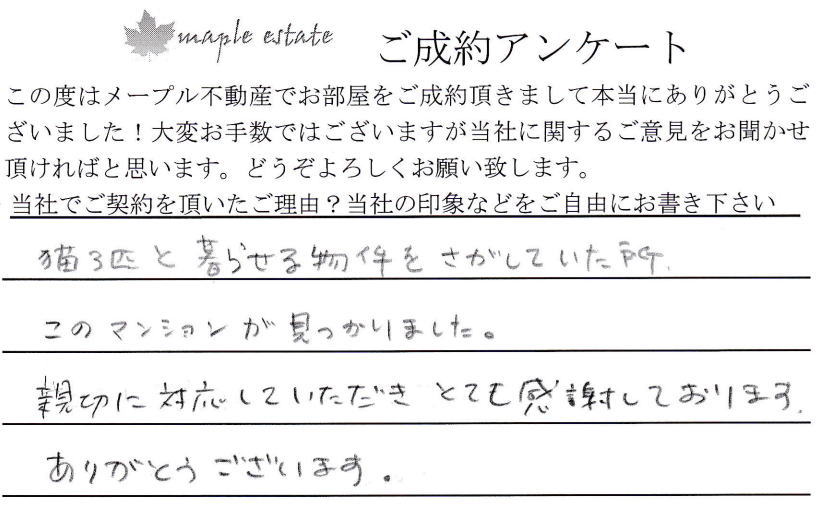 maple estate ご成約アンケート
この度はメープル不動産でお部屋をご成約頂きまして本当にありがとうご
ざいました！大変お手数ではございますが当社に関するご意見をお聞かせ
頂ければと思います。どうぞよろしくお願い致します。
当社でご契約を頂いたご理由？当社の印象などをご自由にお書き下さい
猫3匹と暮らせる物件をさがしていた所、
このマンションが見つかりました。
親切に対応していただきとても感謝しております。
ありがとうございます。